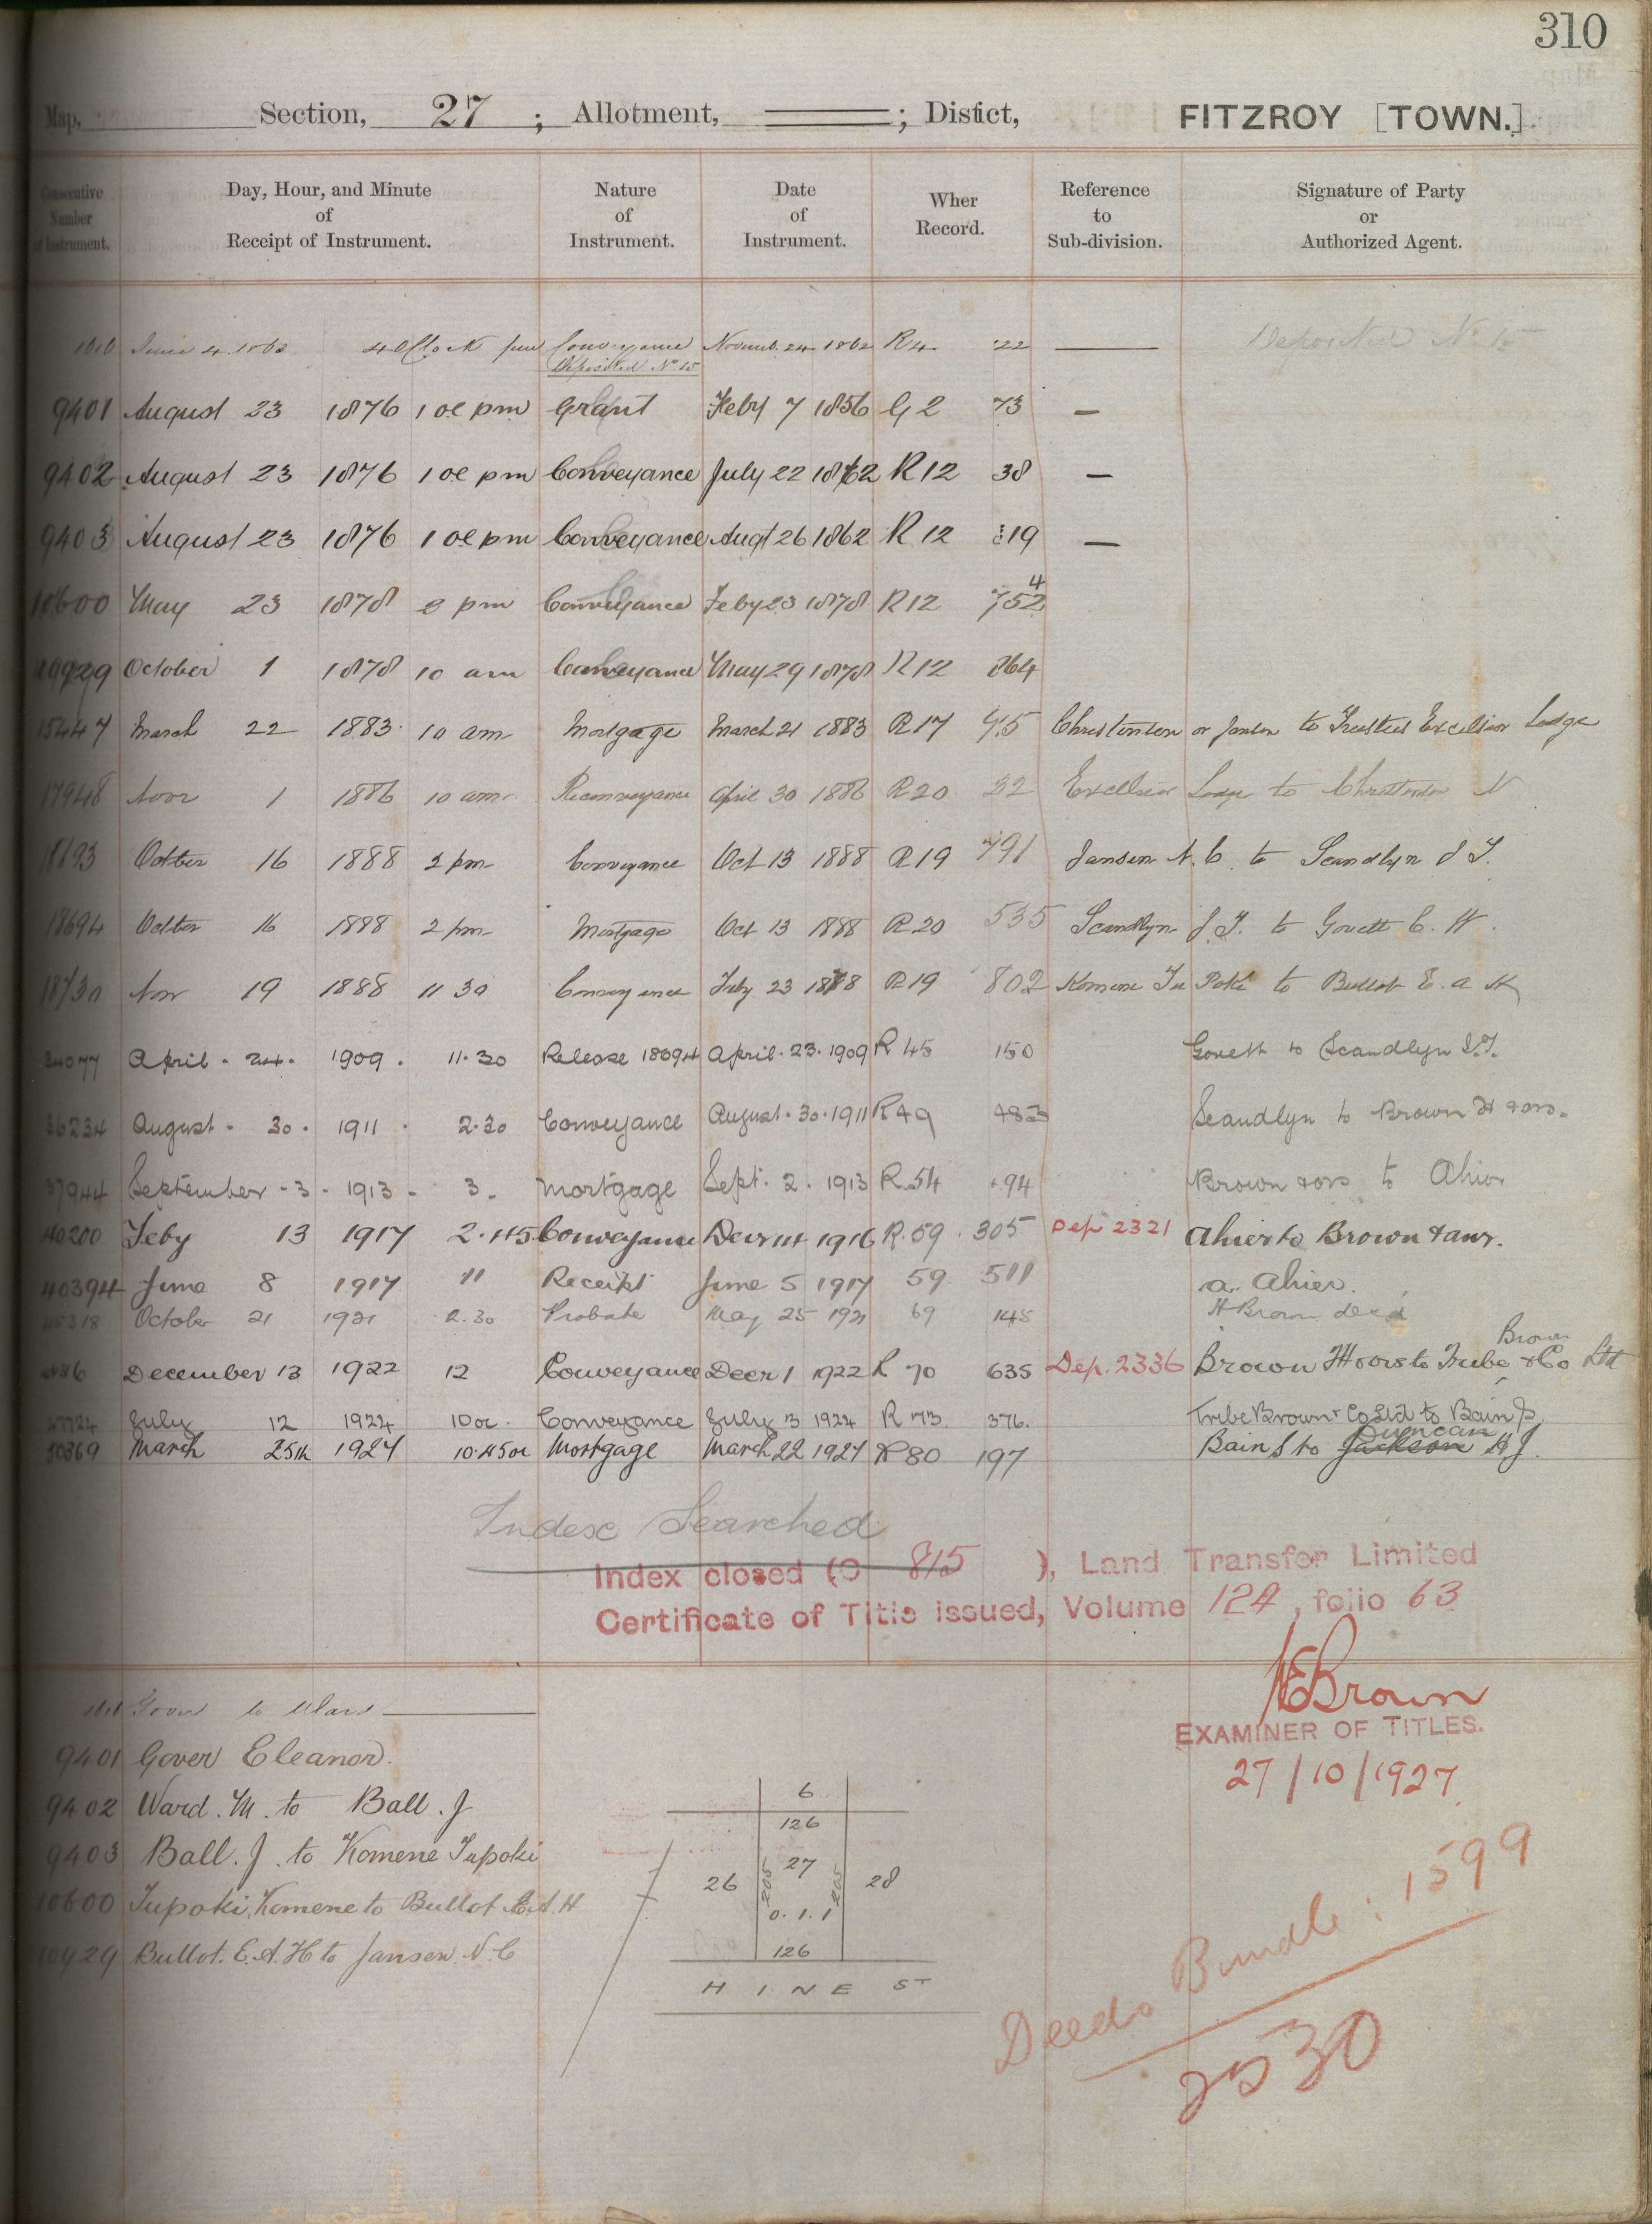 310
Map, Section, 27 ; Allotment, ; Distict, FITZROY [TOWN.]
Consecutive Number of Instrument.
Day, Hour, and Minute of Receipt of Instrument.
Nature of Instrument.
Date of Instrument.
Wher Record.
Reference to Sub-division.
Signature of Party or Authorized Agent.
June 4 1863 4 OClock Conveyance Novemb. 24 1862 R4 22 Deposited No 15
Deposited No 15
9401 August 23 1876 1 oc pm Grant Feby 7 1856 G 2 73 —
9402 August 23 1876 1 oc pm Conveyance July 22 1862 R 12 38 —
9403 August 23 1876 1 oc pm Conveyance Augt 26 1862 R 12 319 —
10600 May 23 1878 2 pm Conveyance Feby 23 1878 R12 752
4
10929 October 1 1878 10 am Conveyance May 29 1878 R12 864
15447 March 22 1883 10 am Mortgage March 21 1883 R17 or Jansen to Trustees Excelsior Lodge
17948 Novr 1 1886 10 am Reconveyance April 30 1886 R20 32 Excelsior Lodge to
18693 October 16 1888 2 pm Conveyance Oct 13 1888 R19 791 Jansen N. C. to Scandlyn J T.
18694 October 16 1888 2 pm Mortgage Oct 13 1888 R20 535 Scandlyn J. T. to Govett C. W.
18730 Nov 19 1888 11 30 Conveyance Feby 23 1878 R19 802 Komene Tu Poki to Bullot E. A H
April . 24 . 1909 . 11.30 Release 18694 April . 23 . 1909 R 45 150 Govett to Scandlyn J.T.
36234 August . 30 . 1911 . 2.30 Conveyance August . 30 . 1911 R49 483 Scandlyn to Brown H & ors.
37944 September - 3 - 1913 - 3 - Mortgage Sept . 2 . 1913 R.54 94 Brown & ors to Ahier
40200 Feby 13 1917 2.45 Conveyance Decr 14 1916 R.59 . 305 Dep 2321 Ahier to Brown & anr.
40394 June 8 1917 11 Receipt June 5 1917 59. 511 a. Ahier.
October 21 1921 2.30 Probate May 25 1921 69 145 H Brown decd
Brown
December 13 1922 12 Conveyance Decr 1 1922 R 70 635 Dep. 2336 Brown H & ors to Tribe & Co Ltd
July 12 1924 10 oc . Conveyance July 3 1924 R 73 376. Tribe Brown & Co Ltd to Bain J.
Duncan
50869 March 25th 1927 10.45 oc Mortgage March 22 1927 R 80 197 Bain J to Jackson H J.
Index Searched
Index closed (O 815 ), Land Transfer Limited
Certificate of Title issued, Volume 124, folio 63
HEBrown
EXAMINER OF TITLES.
27/10/1927
Gover to Ward
9401 Gover Eleanor.
9402 Ward. M. to Ball. J
9403 Ball. J. to Komene Tupoki
10600 Tupoki, Komene to Bullot E.A.H
10929 Bullot. E. A. H to Jansen N. C
6
126
26 205 27 205 28
0. 1. 1
126
HINE ST
Deeds Bundle : 1599
2530